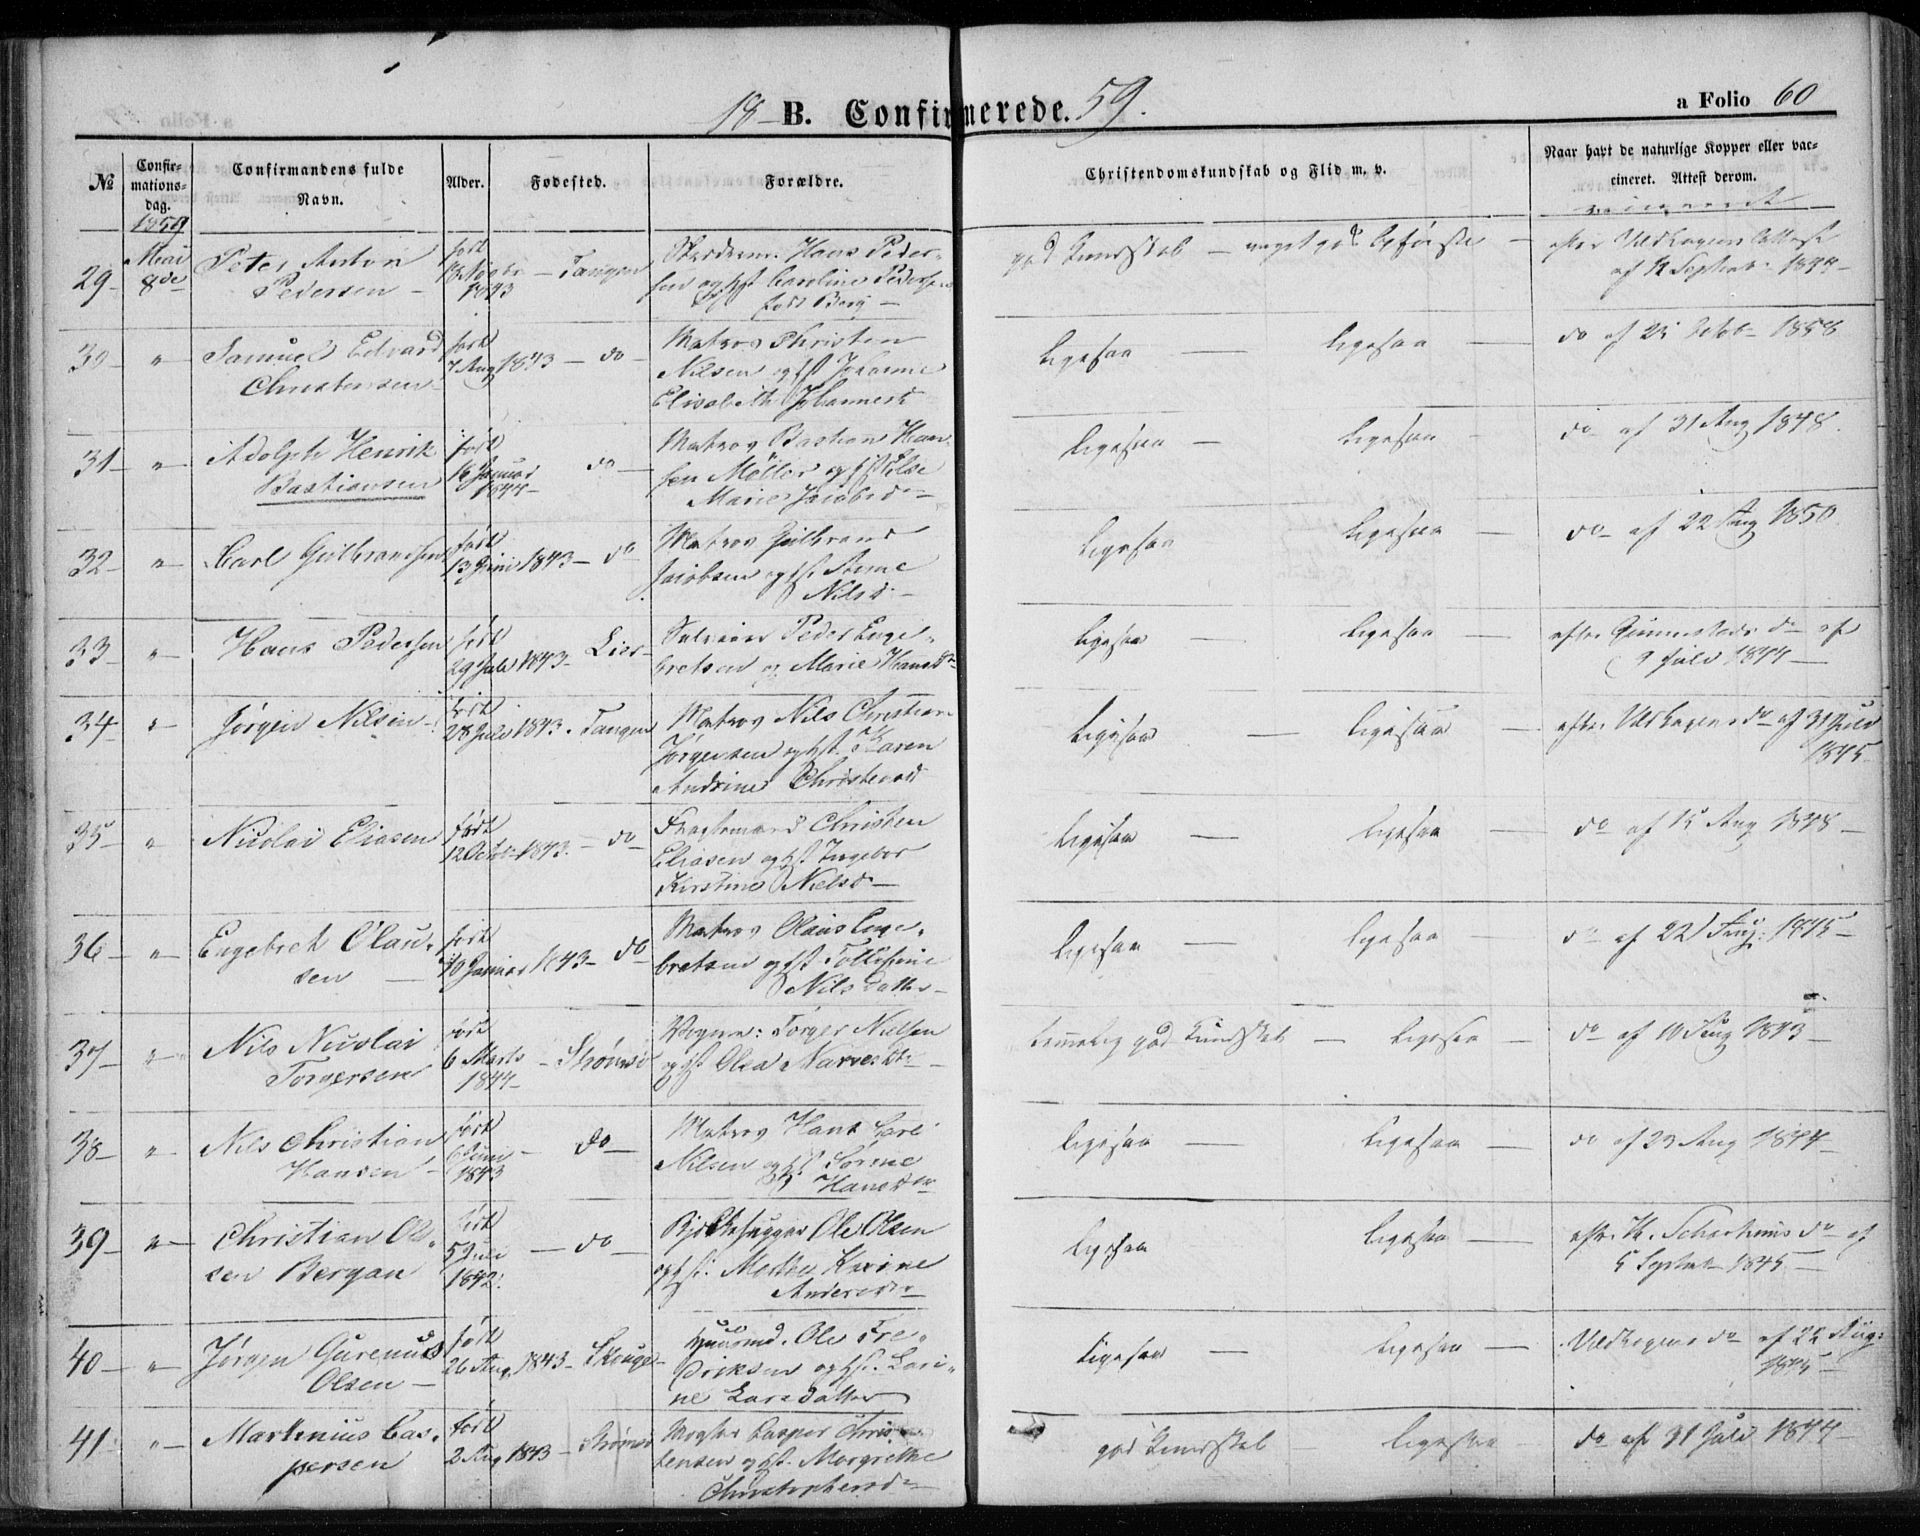 18 B. Confirmerede. 59.
a Folio 60
№
Confir-
mations-
dag.
Confirmandens fulde
Navn.
Alder.
Fødested.
Forældre.
Christendomskundskab og Flid m. v.
Naar havt de naturlige Kopper eller vac-
cineret. Attest derom.
1859
29 Mai 8de
Peter Anton
Pedersen
født
1843
Tangen
Hans Peder-
sen og Hst Caroline Pedersen
født Berg
god Kundskab — meget god Opførsel
1844
30 "
Samuel Edvard
Christensen
født
7 Aug 1843 — do
Matros Christen
Nilsen og Hst Johanne
Elisabeth Johannesd
Ligesaa — Ligesaa —
do af 25 Octob 1858
31 "
Adolph Henrik
Bastiansen
født
Januar
1844
do
Matros Bastian Han-
sen Møller og Hst Else
Marie Jacobsd
Ligesaa — Ligesaa —
do af 31 Aug 1848.
32 "
Carl Gulbrandsen
født
13 Juni 1843 — do
Matros Gulbrand
Jacobsen og Hst. Anne
Nilsd
Ligesaa — Ligesaa —
do af 22 Aug 1850
33 "
Hans Pedersen
født
29 Juli 1843 — Lier
Peder Engel-
bretsen og Marie Hansd
Ligesaa — Ligesaa —
efter do af
9 Juli 1844
34 "
Jørgen Nilsen
født
28 Juli 1843. Tangen
Matros Nils Christian
Jørgensen og Hst. Karen
Andrine Christensd
Ligesaa — Ligesaa —
efter do af 31 Juli
1845
35 "
Nicolai Eliasen
født
12 Octbr 1843. — do
Fragtemand Christen
Eliasen og Hst Ingebor
Kirstine Nielsd
Ligesaa — Ligesaa —
do af 15 Aug 1848
36 "
Engebret Olau-
sen
født
Januar 1843 — do
Matros Olaus Enge-
bretsen og Hst
Nilsdatter
Ligesaa — Ligesaa —
do af 22 Aug: 1845
37 "
Nils Nicolai
Torgersen
født
6 Marts
1844
Strømsø
Vognm: Torger Nielsen
og Hst Olea Narvesd
temmelig god Kundskab — Ligesaa —
do af 10 Aug 1843
38 "
Nils Christian
Hansen
født
6 Juni
1843
do
Matros Hans Carl
Nilsen og Hst
Hansd
Ligesaa — Ligesaa —
do af 23 Aug 1844
39 "
Christian Ol-
sen Bergan
født
5 Juli
1842.
do
Ole Olsen
og Hst. Marthe Karine
Andersd
Ligesaa — Ligesaa —
do af
5 Septbr 1845
40 "
Jørgen Gurenius
Olsen
født
26 Aug. 1843 — Skouger
Huusmd. Ole Fre-
driksen og Hst. Lari-
ne Larsdatter
Ligesaa — Ligesaa —
do af 22 Aug:
1845
41 "
Marthinius Cas-
persen
født
2 Aug 1843 — Strømsø
Casper Chris-
tensen og Hst. Margrethe
Christophersd
god Kundskab Ligesaa
do af 31 Juli 1844